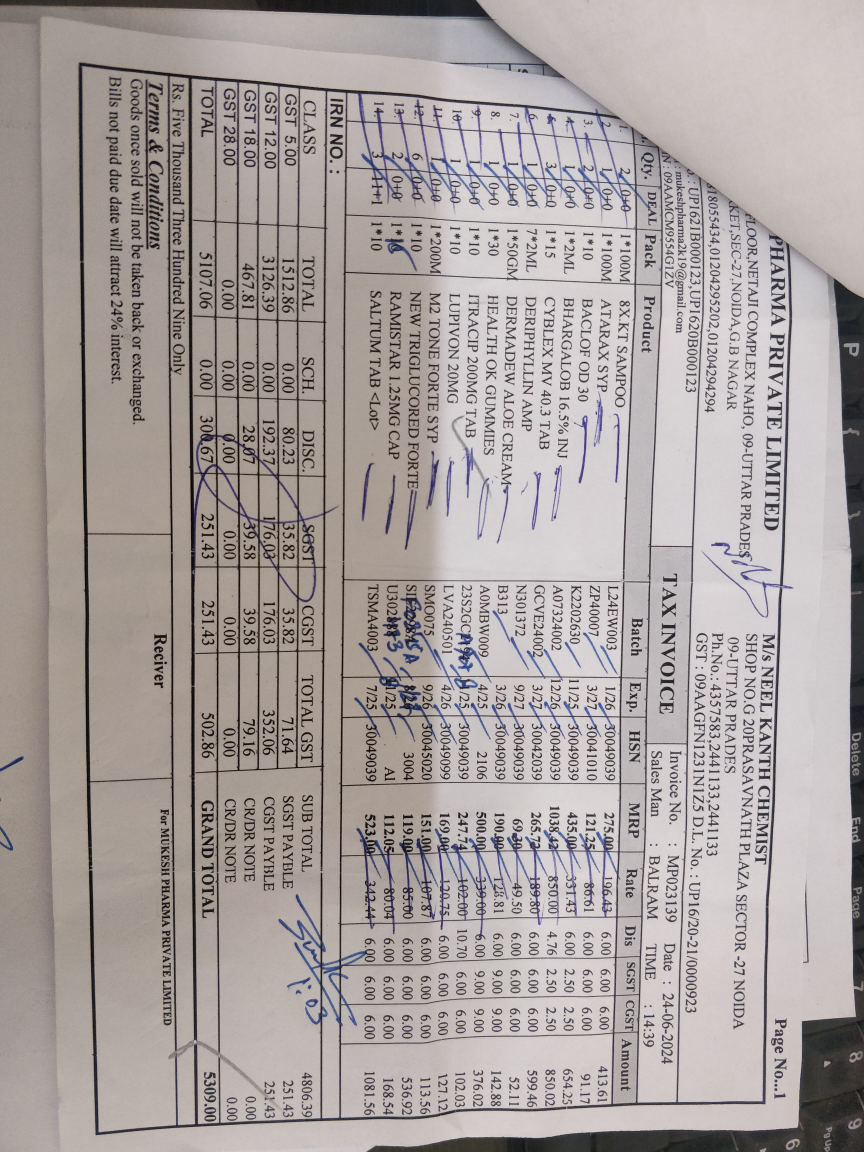 PHARMA PRIVATE LIMITED
FLOOR,NETAJI COMPLEX NAHO, 09-UTTAR PRADES
KET,SEC-27,NOIDA,G.B NAGAR
8055434,01204295202,01204294294
: UP1621B000123,UP1620B000123
: mukeshpharma2k19@gmail.com
N : 09AAMCM9554G1ZV
Page No...1
M/s NEEL KANTH CHEMIST
SHOP NO.G 20PRASAVNATH PLAZA SECTOR -27 NOIDA
09-UTTAR PRADES
Ph.No.: 4357583,2441133,2441133
GST : 09AAGFN1231N1Z5 D.L. No. : UP16/20-21/0000923
TAX INVOICE
Invoice No. : MP023139 Date : 24-06-2024
Sales Man : BALRAM TIME : 14:39
Qty. DEAL Pack Product Batch Exp. HSN MRP Rate Dis SGST CGST Amount
1. 2 0+0 1*100M 8X.KT SAMPOO L24EW003 1/26 30049039 275.00 196.43 6.00 6.00 6.00 413.61
2. 1 0+0 1*100M ATARAX SYP ZP40007 3/27 30041010 121.25 86.61 6.00 6.00 6.00 91.17
3. 2 0+0 1*10 BACLOF OD 30 K2202630 11/25 30049039 435.00 331.43 6.00 2.50 2.50 654.25
4. 1 0+0 1*2ML BHARGALOB 16.5% INJ A07324002 12/26 30049039 1038.42 850.00 4.76 2.50 2.50 850.02
5. 3 0+0 1*15 CYBLEX MV 40.3 TAB GCVE24002 3/27 30042039 265.72 189.80 6.00 6.00 6.00 599.46
6. 1 0+0 7*2ML DERIPHYLLIN AMP N301372 9/27 30049039 69.30 49.50 6.00 6.00 6.00 52.11
7. 1 0+0 1*50GM DERMADEW ALOE CREAM B313 3/26 30049039 190.00 128.81 6.00 9.00 9.00 142.88
8. 1 0+0 1*30 HEALTH OK GUMMIES A0MBW009 4/25 2106 500.00 339.00 6.00 9.00 9.00 376.02
9. 1 0+0 1*10 ITRACIP 200MG TAB 1/25 30049039 247.74 102.00 10.70 6.00 6.00 102.03
10. 1 0+0 1*10 LUPIVON 20MG LVA240501 4/26 30049099 169.00 120.75 6.00 6.00 6.00 127.12
11. 1 0+0 1*200M M2 TONE FORTE SYP SMO075 9/26 30045020 151.00 107.87 6.00 6.00 6.00 113.56
12. 6 0+0 1*10 NEW TRIGLUCORED FORTE 3004 119.00 85.00 6.00 6.00 6.00 536.92
13. 2 0+0 1*10 RAMISTAR 1.25MG CAP 1/25 A1 112.05 80.04 6.00 6.00 6.00 168.54
14. 3 11+1 1*10 SALTUM TAB <Lot> TSMA4003 7/25 30049039 523.00 342.44 6.00 6.00 6.00 1081.56
IRN NO. :
CLASS TOTAL SCH. DISC. SGST CGST TOTAL GST
GST 5.00 1512.86 0.00 80.23 35.82 35.82 71.64
GST 12.00 3126.39 0.00 192.37 176.03 176.03 352.06
GST 18.00 467.81 0.00 28.07 39.58 39.58 79.16
GST 28.00 0.00 0.00 0.00 0.00 0.00 0.00
TOTAL 5107.06 0.00 300.67 251.43 251.43 502.86
SUB TOTAL 4806.39
SGST PAYBLE 251.43
CGST PAYBLE 251.43
CR/DR NOTE 0.00
CR/DR NOTE 0.00
GRAND TOTAL 5309.00
1:03
Rs. Five Thousand Three Hundred Nine Only
Terms & Conditions
Goods once sold will not be taken back or exchanged.
Bills not paid due date will attract 24% interest.
Reciver
For MUKESH PHARMA PRIVATE LIMITED
P
Delete
End
Page
7
8
9
6
Pg Up